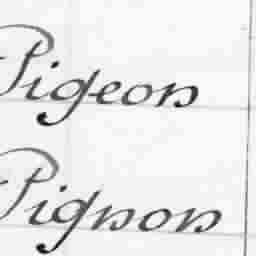 Pigeon
Pignon